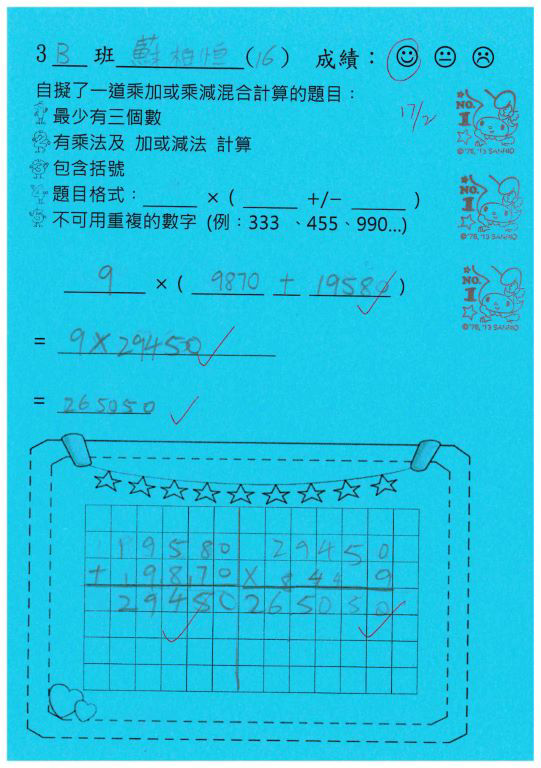 3 B 班 蘇柏恒 (16) 成績：
17/2
自擬了一道乘加或乘減混合計算的題目：
最少有三個數
有乘法及 加或減法 計算
包含括號
題目格式：______ × ( ______ +/− ______ )
不可用重複的數字 (例：333 、455、990...)
NO.1
©'76, '13 SANRIO
NO.1
©'76, '13 SANRIO
NO.1
©'76, '13 SANRIO
9 × ( 9870 + 19580 )
= 9×29450
= 265050
19580 29450
+ 9870 × 9
29450 265050